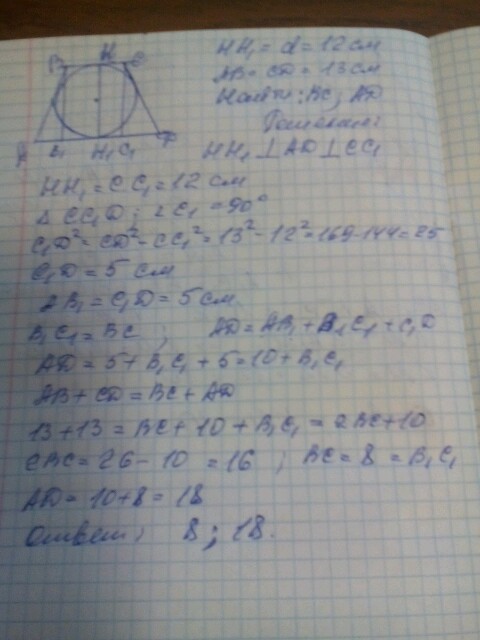 B H C
A B₁ H₁ C₁ D
HH₁ = d = 12 см
AB = CD = 13 см
Найти: BC; AD
Решение:
HH₁ ⊥ AD ⊥ CC₁
HH₁ = CC₁ = 12 см
△ CC₁D; ∠C₁ = 90°
C₁D² = CD² - CC₁² = 13² - 12² = 169 - 144 = 25
C₁D = 5 см
AB₁ = C₁D = 5 см
B₁C₁ = BC ; AD = AB₁ + B₁C₁ + C₁D
AD = 5 + B₁C₁ + 5 = 10 + B₁C₁
AB + CD = BC + AD
13 + 13 = BC + 10 + B₁C₁ = 2BC + 10
2BC = 26 - 10 = 16 ; BC = 8 = B₁C₁
AD = 10 + 8 = 18
Ответ: 8 ; 18.